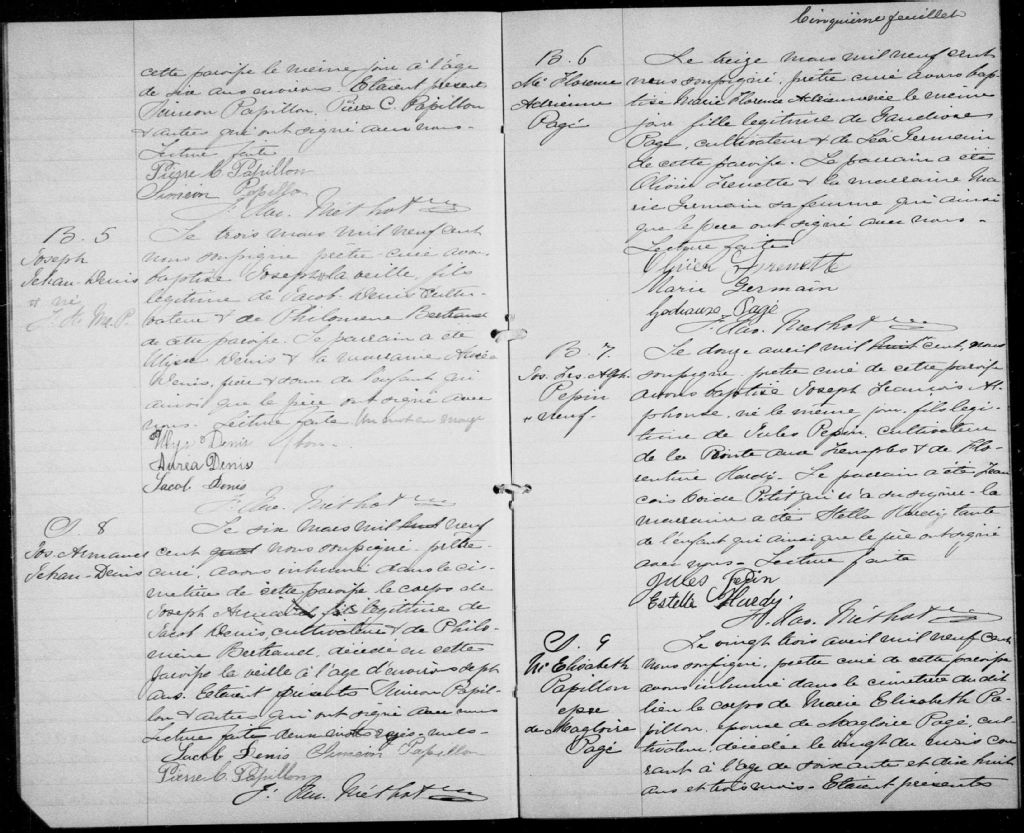 cette paroisse le même jour à l'âge
de six ans environ. Etaient présents
Simeon Papillon, Pierre C. Papillon
& autres qui ont signé avec nous.
Lecture faite
Pierre C Papillon
Simeon Papillon
F. Xav. Méthot
B. 5
Joseph
Jehan-Denis
né
Le trois mars mil neuf cent
nous soussigné prêtre curé avons
baptisé Joseph né la veille, fils
légitime de Jacob Denis culti-
vateur & de Philomène Bertrand
de cette paroisse. Le parrain a été
Ulysse Denis & la marraine
Denis, frère & soeur de l'enfant qui
ainsi que le père ont signé avec
nous. Lecture faite Un mot en marge
bon.
Ulysse Denis
Auréa Denis
Jacob Denis
F. Xav. Méthot
S. 8
Jos. Armand
Jehan-Denis
Le six mars mil huit neuf
cent nous soussigné prêtre
curé, avons inhumé dans le ci-
metière de cette paroisse le corps de
Joseph Armand, fils légitime de
Jacob Denis, cultivateur & de Philo-
mène Bertrand, décédé en cette
paroisse la veille à l'âge d'environ sept
ans. Etaient présents Simeon Papil-
lon & autres qui ont signé avec nous
Lecture faite deux mots rayés nuls-
Jacob Denis Simeon Papillon
Pierre C. Papillon
F. Xav. Méthot
Cinquième feuillet
B. 6
Mie Florence
Adrienne
Pagé
Le treize mars mil neuf cent
nous soussigné, prêtre curé avons bap-
tisé Marie Florence Adrienne née le même
jour fille légitime de Gaudiose
Pagé, cultivateur & de Léa Germain
de cette paroisse. Le parrain a été
Olivier Frenette & la marraine Ma-
rie Germain sa femme qui ainsi
que le père ont signé avec nous -
Lecture faite
Olivier Frenette
Marie Germain
Pagé
F. Xav. Méthot
B. 7.
Jos. Frs. Alph.
Pepin
neuf
Le douze avril mil huit cent, nous
soussigné, prêtre curé de cette paroisse
avons baptisé Joseph François Al-
phonse, né le même jour, fils légi-
time de Jules Pepin, cultivateur
de la Pointe aux Trembles & de Flo-
rentine Hardy. Le parrain a été Fran-
çois Petit qui n'a su signer - la
marraine a été Stella Hardy, tante
de l'enfant qui ainsi que le père ont signé
avec nous - Lecture faite
Jules Pepin
Estella Hardy
F. Xav. Méthot
S. 9
Me Elisabeth
Papillon
epse
de Magloire
Pagé
Le vingt trois avril mil neuf cent
nous soussigné, prêtre curé de cette paroisse
avons inhumé dans le cimetière du dit
lieu le corps de Marie Elisabeth Pa-
pillon, épouse de Magloire Pagé, cul-
tivateur, décédée le vingt du mois cou-
rant à l'âge de soixante et dix huit
ans et trois mois - Etaient présents